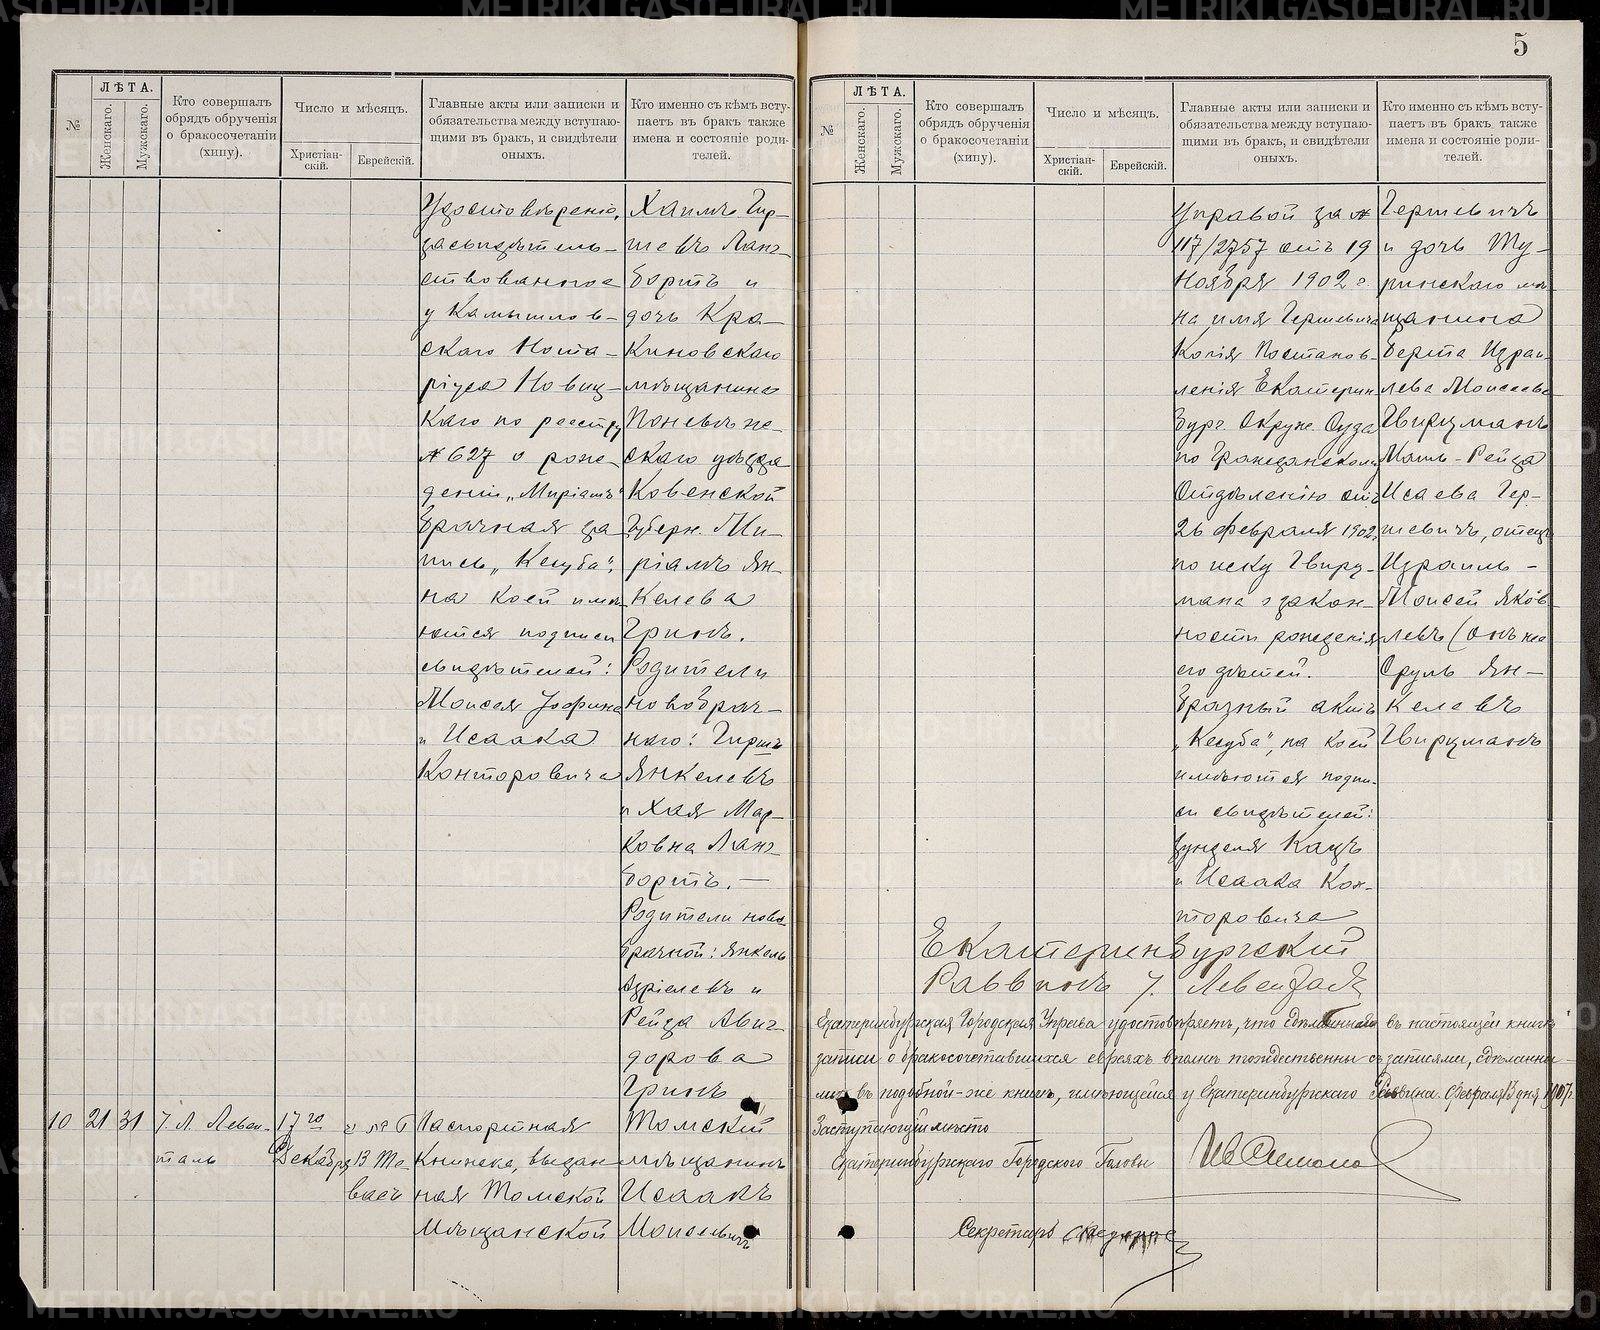 5
№
ЛѢТА.
Женскаго.
Мужскаго.
Кто совершалъ
обрядъ обрученія
о бракосочетаніи
(хипу).
Число и мѣсяцъ.
Христіан-
скій.
Еврейскій.
Главные акты или записки и
обязательства между вступаю-
щими въ бракъ, и свидѣтели
оныхъ.
Кто именно съ кѣмъ всту-
паетъ въ бракъ также
имена и состояніе роди-
телей.
Удостовѣреніе,
засвидѣтель-
ствованное
у Камышлов-
скаго Нота-
ріуса Новиц-
каго по реестру
№ 627 о рож-
деніи „Миріамъ"
Брачная за-
пись „Кесуба",
на коей имѣ-
ются подписи
свидѣтелей:
Моисея
и Исаака
Конторовича
Хаимъ Гир-
шевъ Ланг-
бортъ и
дочь Кра-
киновскаго
мѣщанина
Поневѣже-
скаго уѣзда
Ковенской
Губерн. Ми-
ріамъ Ян-
келева
Гринъ.
Родители
новобрач-
наго: Гиршъ
Янкелевъ
и Хая Мар-
ковна Ланг-
бортъ. —
Родители ново-
брачной: Янкель
Азріелевъ и
Рейза Авиг-
дорова
Гринъ
10 21 31
Л. Левен-
таль
17 го
Декабря
13 Те-
васъ
Паспортная
Книжка, выдан-
ная Томской
Мѣщанской
Томскій
мѣщанинъ
Исаакъ
Моисеевичъ
№
ЛѢТА.
Женскаго.
Мужскаго.
Кто совершалъ
обрядъ обрученія
о бракосочетаніи
(хипу).
Число и мѣсяцъ.
Христіан-
скій.
Еврейскій.
Главные акты или записки и
обязательства между вступаю-
щими въ бракъ, и свидѣтели
оныхъ.
Кто именно съ кѣмъ всту-
паетъ въ бракъ также
имена и состояніе роди-
телей.
Управой за №
117/2757 отъ 19
Ноября 1902 г.
на имя Гершевича
Копія Постанов-
ленія Екатерин-
бург. Окруж. Суда
по Гражданскому
Отдѣленію отъ
26 февраля 1902,
по иску Гвирц-
мана о закон-
ности рожденія
его дѣтей.
Брачный актъ
„Кесуба", на коей
имѣются подпи-
си свидѣтелей:
Зунделя Кацъ
и Исаака Кон-
торовича
Гершевичъ
и дочь Ту-
ринскаго мѣ-
щанина
Берта Израи-
лева Моисеева
Гвирцманъ
Мать - Рейза
Исаева Гер-
шевичъ, отецъ
Израиль -
Моисей Яков-
левъ (онъ же
Сруль Ян-
келевъ
Гвирцманъ
Екатеринбургскій
Раввинъ Левенталь
Екатеринбургская Городская Управа удостовѣряетъ, что сдѣланныя въ настоящей книгѣ
записи о бракосочетавшихся евреяхъ вполнѣ тождественны съ записями, сдѣланны-
ми въ подобной-же книгѣ, имѣющейся у Екатеринбургскаго Раввина. Февраля 13 дня 1907 г.
Заступающій мѣсто
Екатеринбургскаго Городского Головы
Секретарь
METRIKI.GASO-URAL.RU